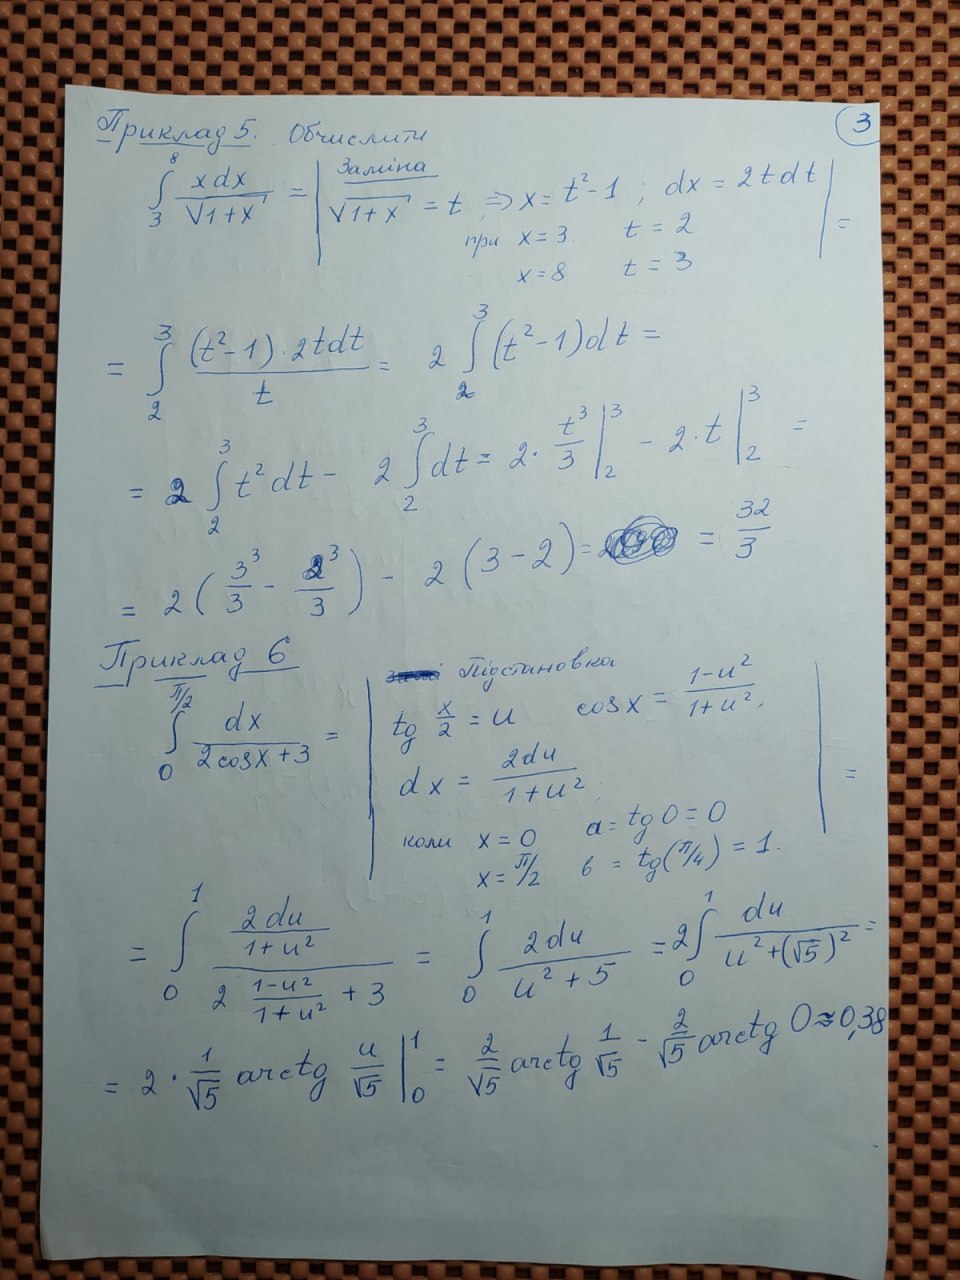 ③
Приклад 5. Обчислити
∫₃⁸ xdx/√(1+x) = | Заміна √(1+x) = t ⇒ x = t²-1 ; dx = 2tdt | =
при x=3 t = 2
x=8 t = 3
= ∫₂³ (t²-1)·2tdt/t = 2 ∫₂³ (t²-1)dt =
= 2 ∫₂³ t²dt - 2 ∫₂³ dt = 2· t³/3 |₂³ - 2·t |₂³ =
= 2 (3³/3 - 2³/3) - 2 (3-2) = = 32/3
Приклад 6
∫₀^(π/2) dx/(2cosx+3) = | Підстановка
tg x/2 = u cosx = (1-u²)/(1+u²),
dx = 2du/(1+u²) | =
коли x=0 a = tg 0 = 0
x = π/2 в = tg(π/4) = 1.
= ∫₀¹ (2du/(1+u²))/(2 (1-u²)/(1+u²) + 3) = ∫₀¹ 2du/(u²+5) = 2∫₀¹ du/(u²+(√5)²) =
= 2 · 1/√5 arctg u/√5 |₀¹ = 2/√5 arctg 1/√5 - 2/√5 arctg 0 ≈ 0,38